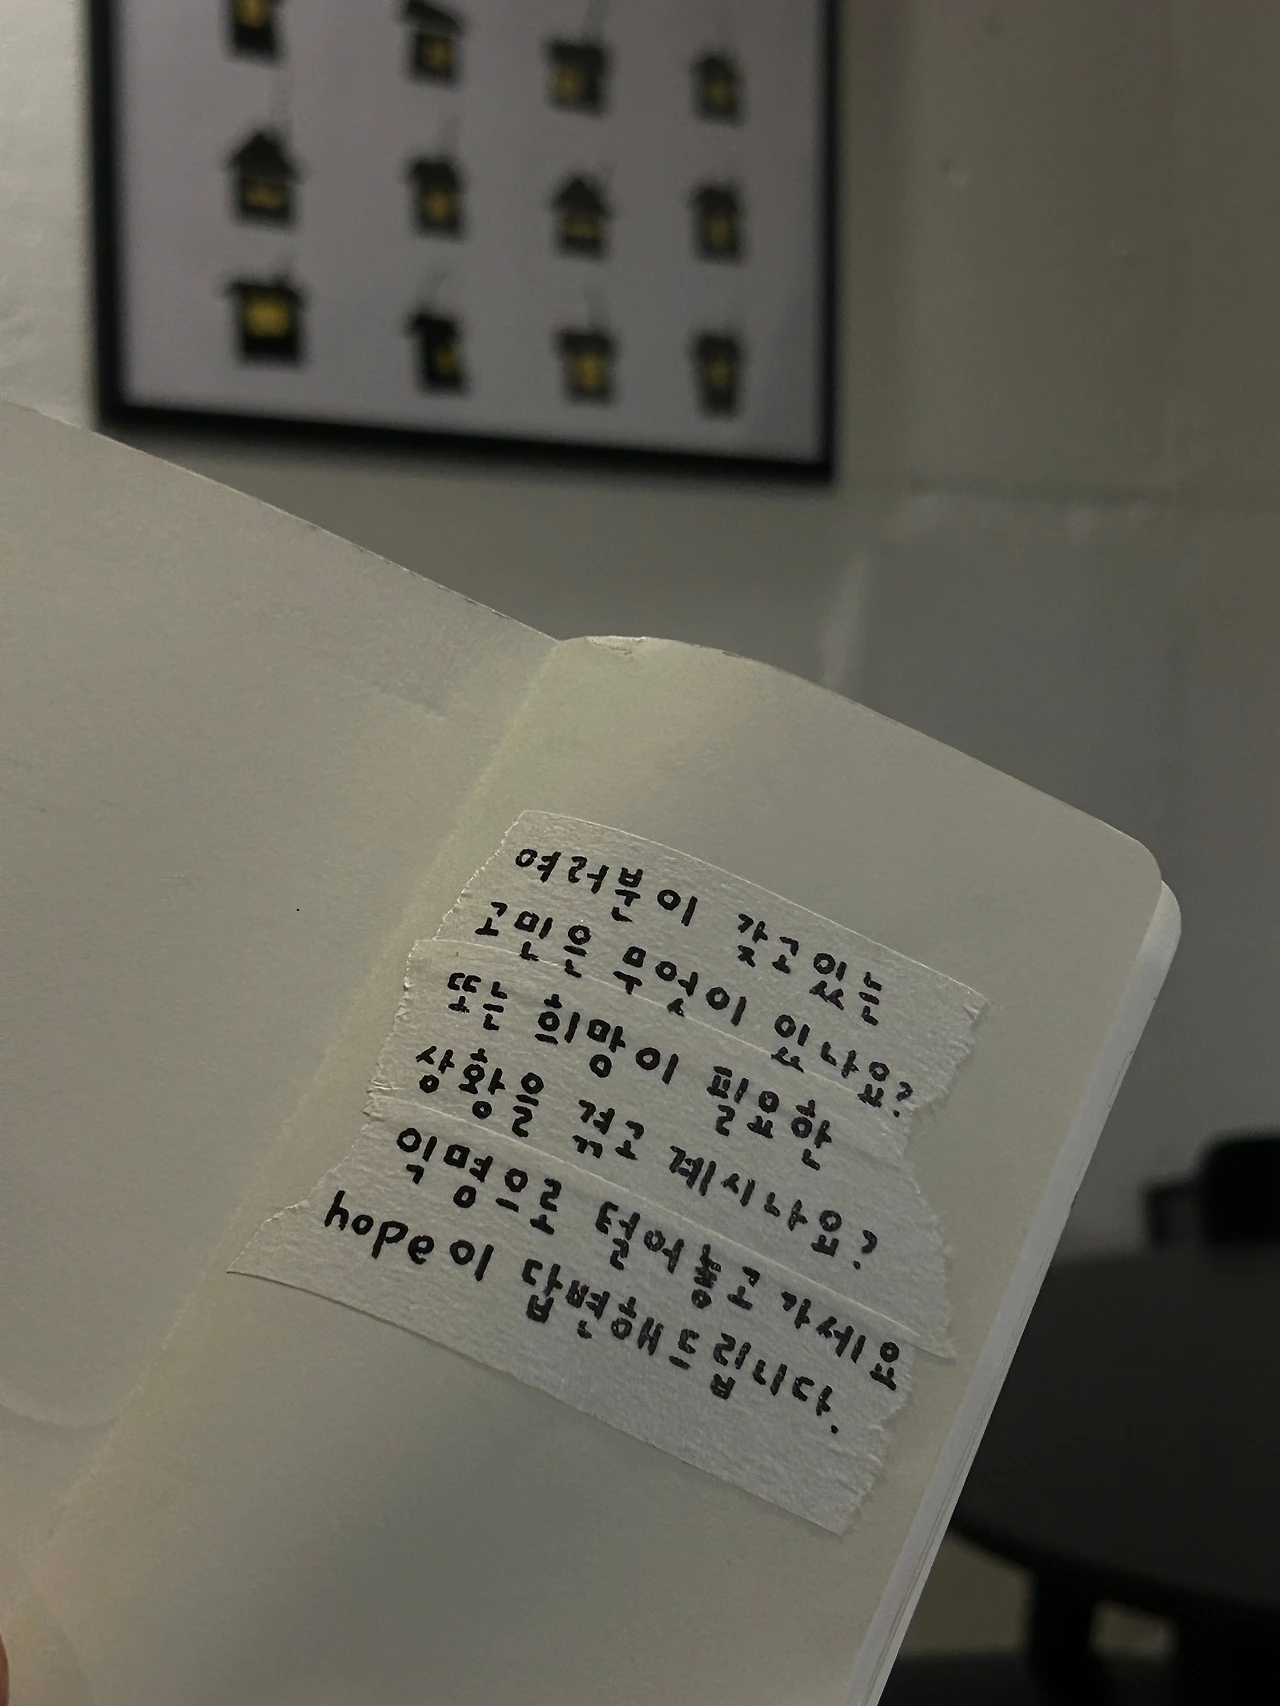 여러분이 갖고있는
고민은 무엇이 있나요?
또는 희망이 필요한
상황을 겪고 계시나요?
익명으로 털어놓고 가세요
hope이 답변해드립니다.